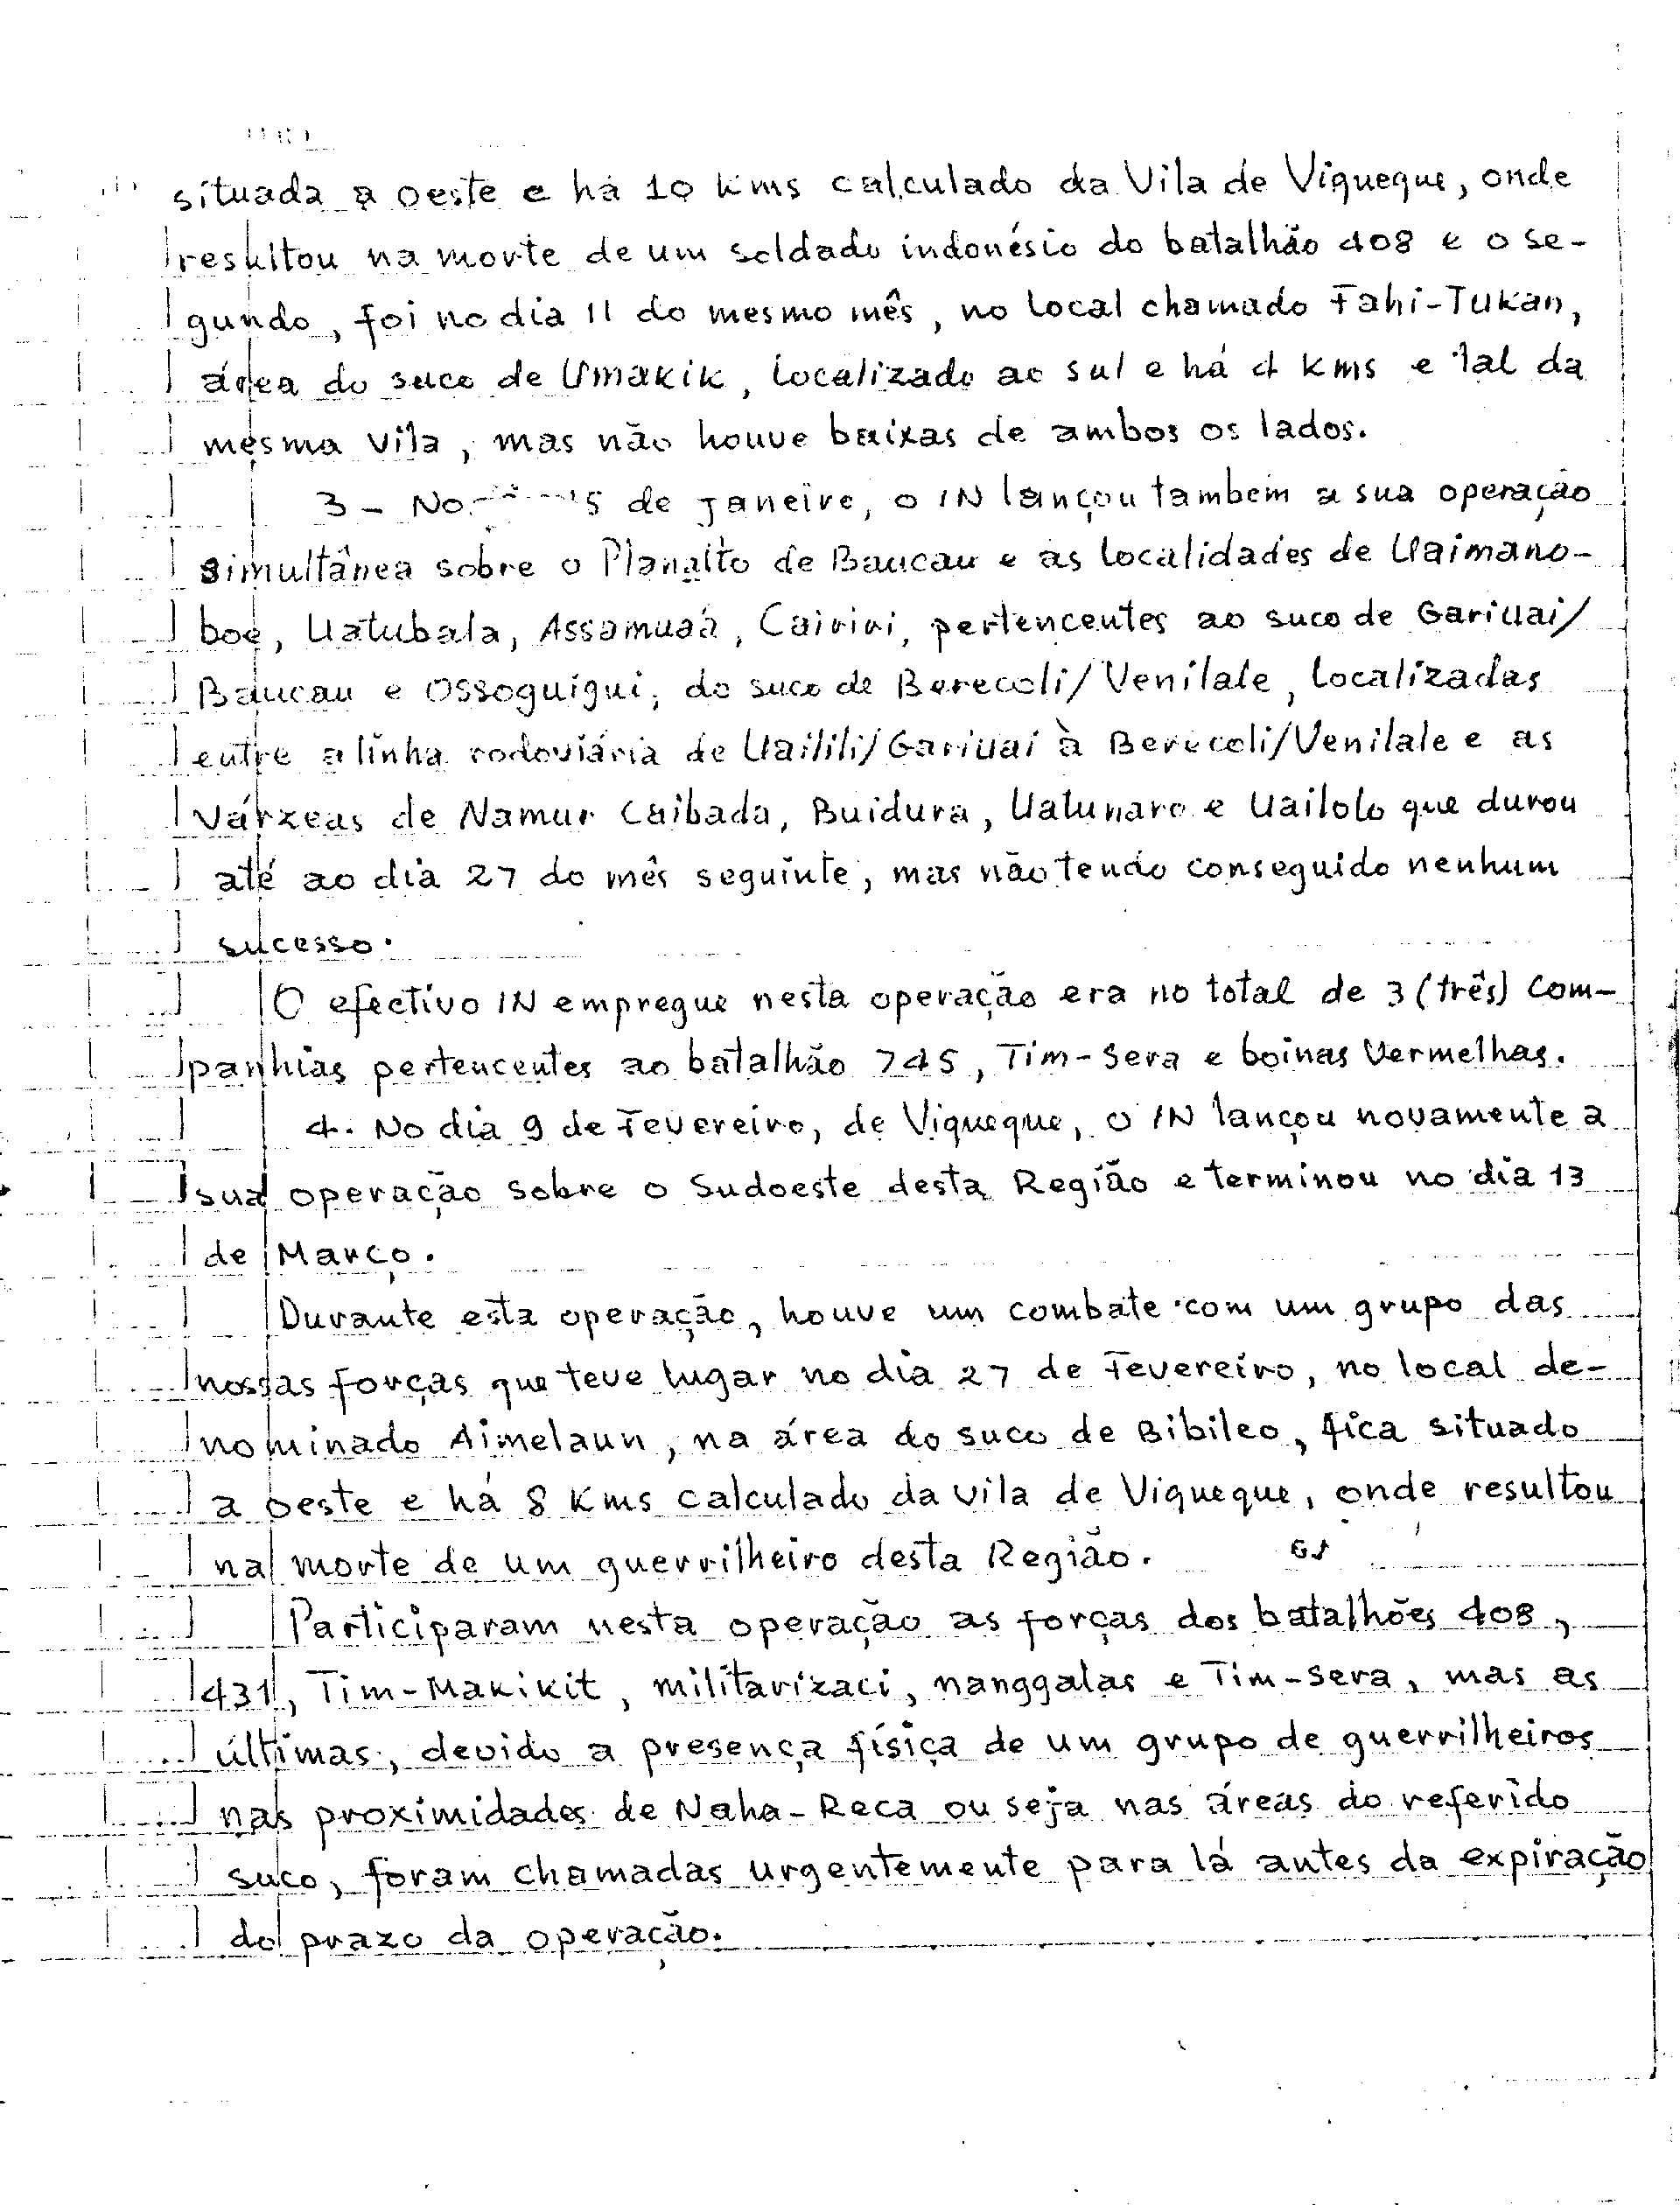 situada a oeste e há 10 kms calculado da Vila de Viqueque, onde
resultou na morte de um soldado indonésio do batalhão 408 e o se-
gundo, foi no dia 11 do mesmo mês, no local chamado Fahi-Tukan,
área do suco de Umakik, localizado ao sul e há 4 kms e tal da
mesma vila, mas não houve baixas de ambos os lados.
3 - No 5 de Janeiro, o IN lançou tambem a sua operação
simultânea sobre o Planalto de Baucau e as localidades de Uaimano-
boe, Uatubala, Assamuaá, Cairiri, pertencentes ao suco de Gariuai/
Baucau e Ossoguigui, do suco de Berecoli/Venilale, localizadas
entre a linha rodoviária de Uailili/Gariuai à Berecoli/Venilale e as
várzeas de Namur Caibada, Buidura, Uatunaro e Uailolo que durou
até ao dia 27 do mês seguinte, mas não tendo conseguido nenhum
sucesso.
O efectivo IN empregue nesta operação era no total de 3 (três) Com-
panhias pertencentes ao batalhão 745, Tim-Sera e boinas Vermelhas.
4. No dia 9 de Fevereiro, de Viqueque, o IN lançou novamente a
sua operação sobre o Sudoeste desta Região e terminou no dia 13
de Março.
Durante esta operação, houve um combate com um grupo das
nossas forças que teve lugar no dia 27 de Fevereiro, no local de-
nominado Aimelaun, na área do suco de Bibileo, fica situado
a oeste e há 8 kms calculado da vila de Viqueque, onde resultou
na morte de um guerrilheiro desta Região.
Participaram nesta operação as forças dos batalhões 408,
431, Tim-Makikit, militarizaci, nanggalas e Tim-Sera, mas as
últimas, devido a presença física de um grupo de guerrilheiros
nas proximidades de Naha-Reca ou seja nas áreas do referido
suco, foram chamadas urgentemente para lá antes da expiração
do prazo da operação.